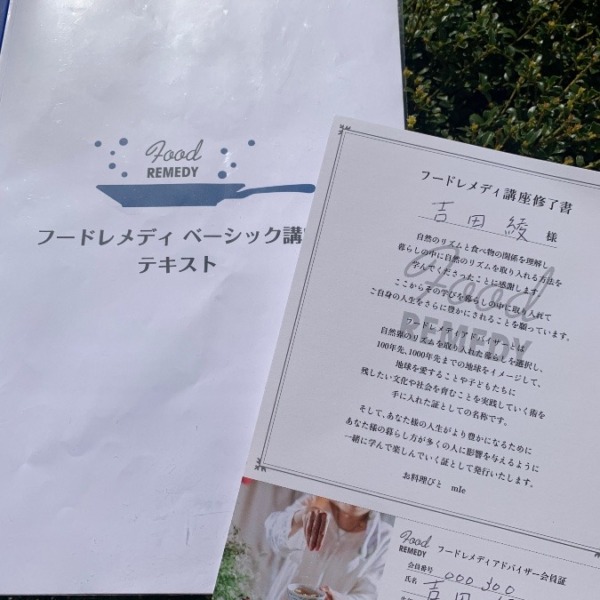 Food
REMEDY
フードレメディ ベーシック講
テキスト
フードレメディ講座修了書
吉田綾 様
自然のリズムと食べ物の関係を理解し
暮らしの中に自然のリズムを取り入れる方法を
学んでくださったことに感謝します。
ここからその学びを暮らしの中に取り入れて
ご自身の人生をさらに豊かにされることを願っています。
Food
REMEDY
フードレメディアドバイザーとは
自然界のリズムを取り入れた暮らしを選択し、
100年先、1000年先までの地球をイメージして、
地球を愛することや子どもたちに
残したい文化や社会を育むことを実践していく術を
手に入れた証としての名称です。
そして、あなた様の人生がより豊かになるために
あなた様の暮らし方が多くの人に影響を与えるように
一緒に学んで楽しんでいく証として発行いたします。
お料理びと mIe
Food
REMEDY
フードレメディアドバイザー会員証
会員番号 000 300
氏名 吉田